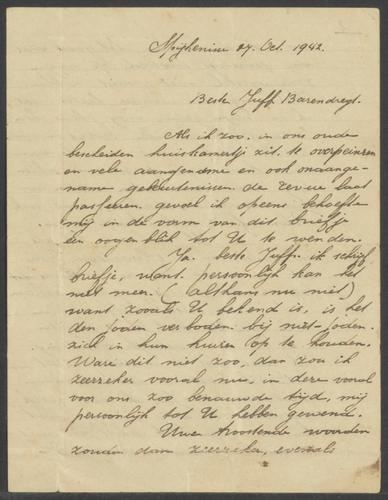 27 Oct. 1942.
Beste Juff. Barendregt.
Als ik zoo in ons oude
bescheiden huiskamertje zit te overpeinzen
en vele aangename en ook onaange-
name gebeurtenissen de revue laat
passeeren gevoel ik opeens behoefte
mij in de vorm van dit briefje
een oogenblik tot U te wenden.
Ja, beste Juffr. ik schrijf
briefje, want persoonlijk kan het
niet meer. (althans nu niet)
want zooals U bekend is, is het
den joden verboden bij niet-joden
zich in hun huizen op te houden.
Ware dit niet zoo, dan zou ik
zeerzeker vooral nu, in deze vooral
voor ons zoo benauwde tijd, mij
persoonlijk tot U hebben gewend.
Uwe troostende woorden
zouden dan zeerzeker, evenals